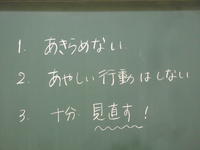 1. あきらめない
2. あやしい行動はしない
3. 十分見直す!